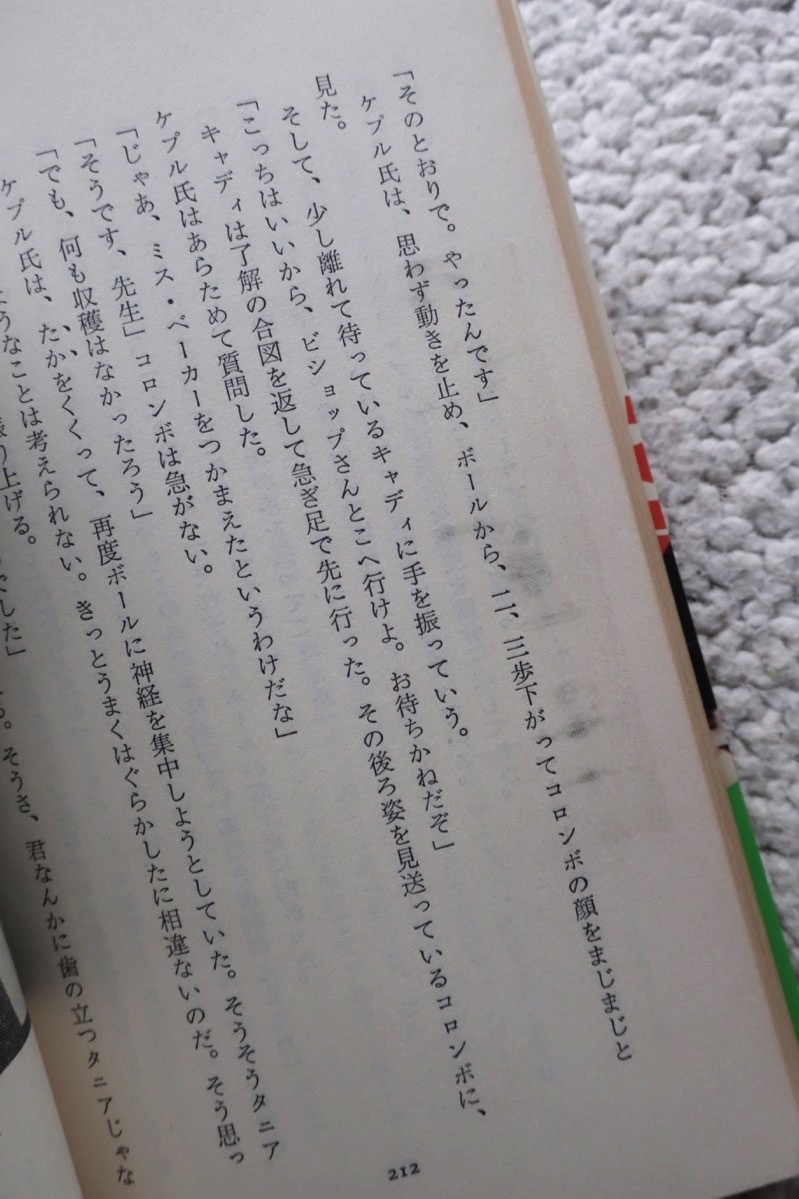 「そのとおりで。やったんです」
ケプル氏は、思わず動きを止め、ボールから、二、三歩下がってコロンボの顔をまじまじと
見た。
そして、少し離れて待っているキャディに手を振っていう。
「こっちはいいから、ビショップさんとこへ行けよ。お待ちかねだぞ」
キャディは了解の合図を返して急ぎ足で先に行った。その後ろ姿を見送っているコロンボに、
ケプル氏はあらためて質問した。
「じゃあ、ミス・ベーカーをつかまえたというわけだな」
「そうです、先生」コロンボは急がない。
「でも、何も収穫はなかったろう」
ケプル氏は、たかをくくって、再度ボールに神経を集中しようとしていた。そうそうタニア
ようなことは考えられない。きっとうまくはぐらかしたに相違ないのだ。そう思っ
り上げる。
でした」
る。そうさ、君なんかに歯の立つタニアじゃな
212